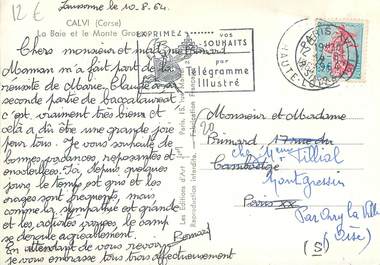 12 €
Lausanne le 10.8.64.
CALVI (Corse)
La Baie et le Monte Gros
EXPRIMEZ
vos
SOUHAITS
par
Télégramme
illustré
PARIS
HAUTE-LOIRE
Chers monsieur et madame Brimard
Maman m'a fait part de la
réussite de Marie Claude à sa
seconde partie de baccalauréat
c'est vraiment très bien et
cela a dû être une grande joie
pour tous. Je vous souhaite de
bonnes vacances, reposantes et
ensoleillées. Ici, depuis quelques
jours le temps est gris et les
orages sont fréquents, mais
comme la sympathie est grande
et les activités variées, le camp
se déroule agréablement.
En attendant de vous revoir,
je vous embrasse tous affectueusement
Les Editions d'Art
Paris
Reproduction interdite
Fabrication Française
20
Monsieur et Madame
Brimard 17 rue du
chez Mme Tillial
Cambrésis
Montgressin
Paris XX
par Orry la Ville
(Oise)
(S)